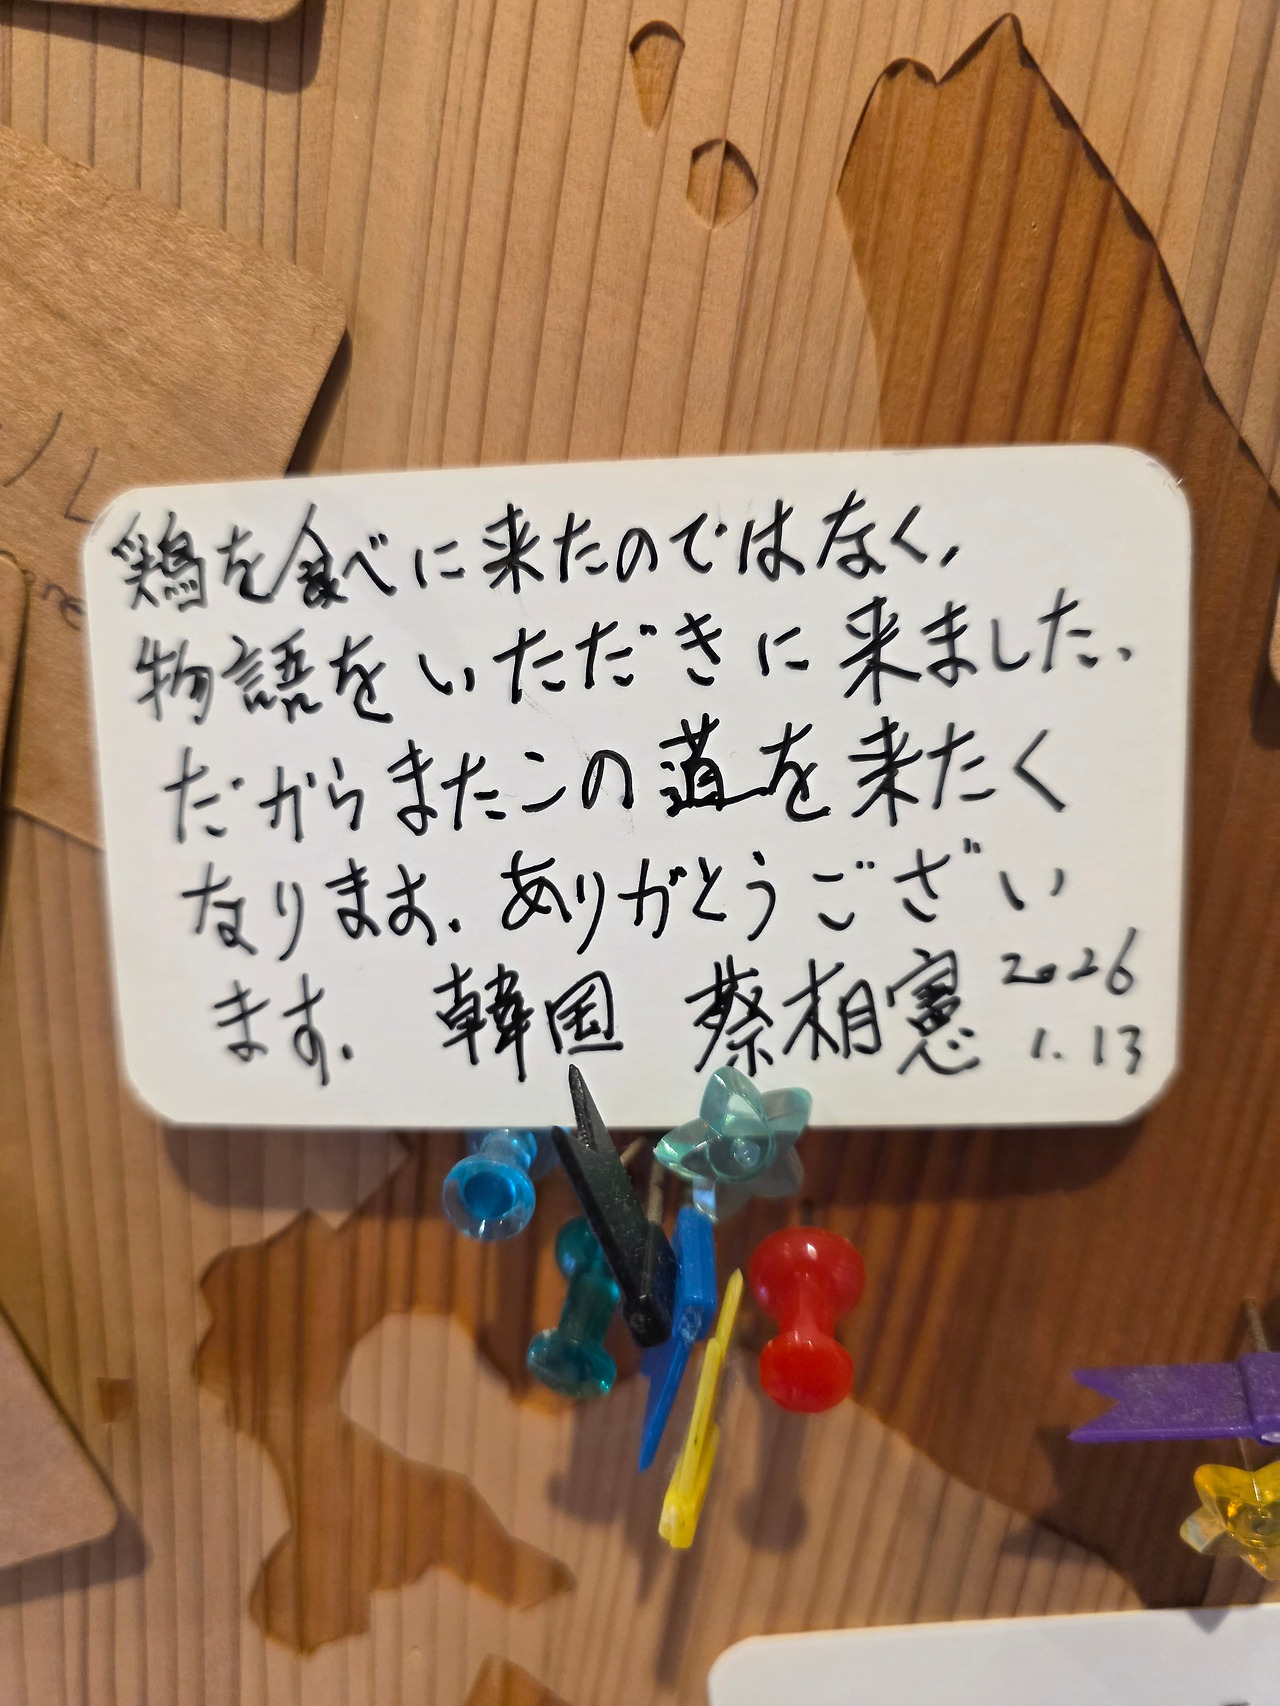 鶏を食べに来たのではなく,
物語をいただきに来ました.
だからまたこの道を来たく
なります. ありがとうござい
ます. 韓国 蔡相憲 2026
1.13